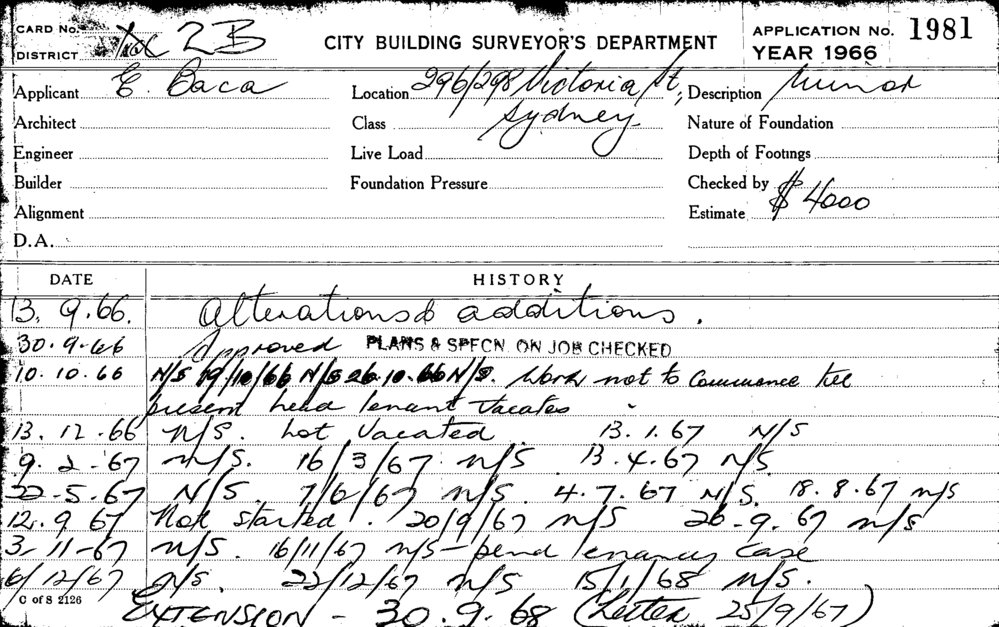 CARD No.
DISTRICT 2B
CITY BUILDING SURVEYOR'S DEPARTMENT
APPLICATION No. 1981
YEAR 1966
Applicant E. Baca
Location 296/298 Victoria St,
Sydney.
Description Minor
Architect
Class
Nature of Foundation
Engineer
Live Load
Depth of Footings
Builder
Foundation Pressure
Checked by
Alignment
Estimate $4000
D.A.
DATE HISTORY
13. 9.66. Alterations & additions.
30.9.66 Approved PLANS & SPECN. ON JOB CHECKED
10.10.66 N/S 19/10/66 N/S 26.10.66 N/S. Work not to Commence till
present head tenant Vacates
13.12.66 N/S. not Vacated 13.1.67 N/S
9.2-67 N/S. 16/3/67 N/S 13.4.67 N/S
22-5-67 N/S. 7/6/67 N/S. 4.7.67 N/S. 18.8.67 N/S
12.9 67 Not started. 20/9/67 N/S 26-9.67 N/S
3-11-67 N/S. 16/11/67 N/S - pend tenancy case
6/12/67 N/S. 22/12/67 N/S 15/1/68 N/S.
C of S 2126
EXTENSION - 30.9.68 (Letter 25/9/67)